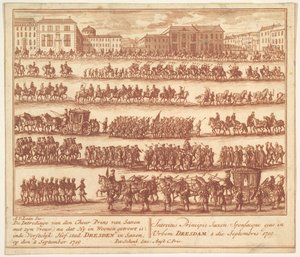 De Intreding van den Cheur Prins van Saxen
met zyn Vrouw, na dat Hy in Weenen getrouwt is
inde Hof-stad DRESDEN in Saxen,
op den 2 September 1719.
Introitus Principis Saxon: Sponsæque eius in
Urbem DRESDAM 2 die Septembris 1719.